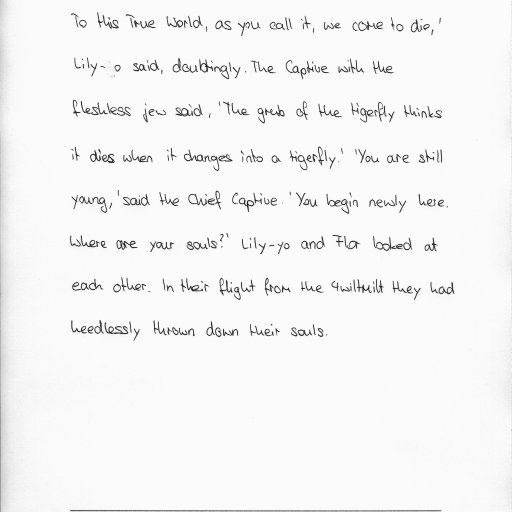 To this True World, as you call it, we come to die,'
Lily-o said, doubtingly. The Captive with the
fleshless jew said, 'The grub of the tigerfly thinks
it dies when it changes into a tigerfly.' 'You are still
young,' said the Chief Captive. 'You begin newly here.
Where are your souls?' Lily-yo and Flor looked at
each other. In their flight from the 4wiltmilt they had
heedlessly thrown down their souls.